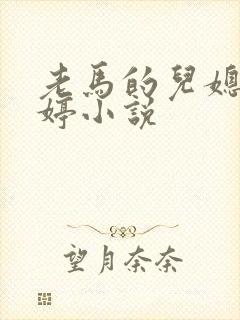 老馬的兒媳
婷小說
望月奈奈